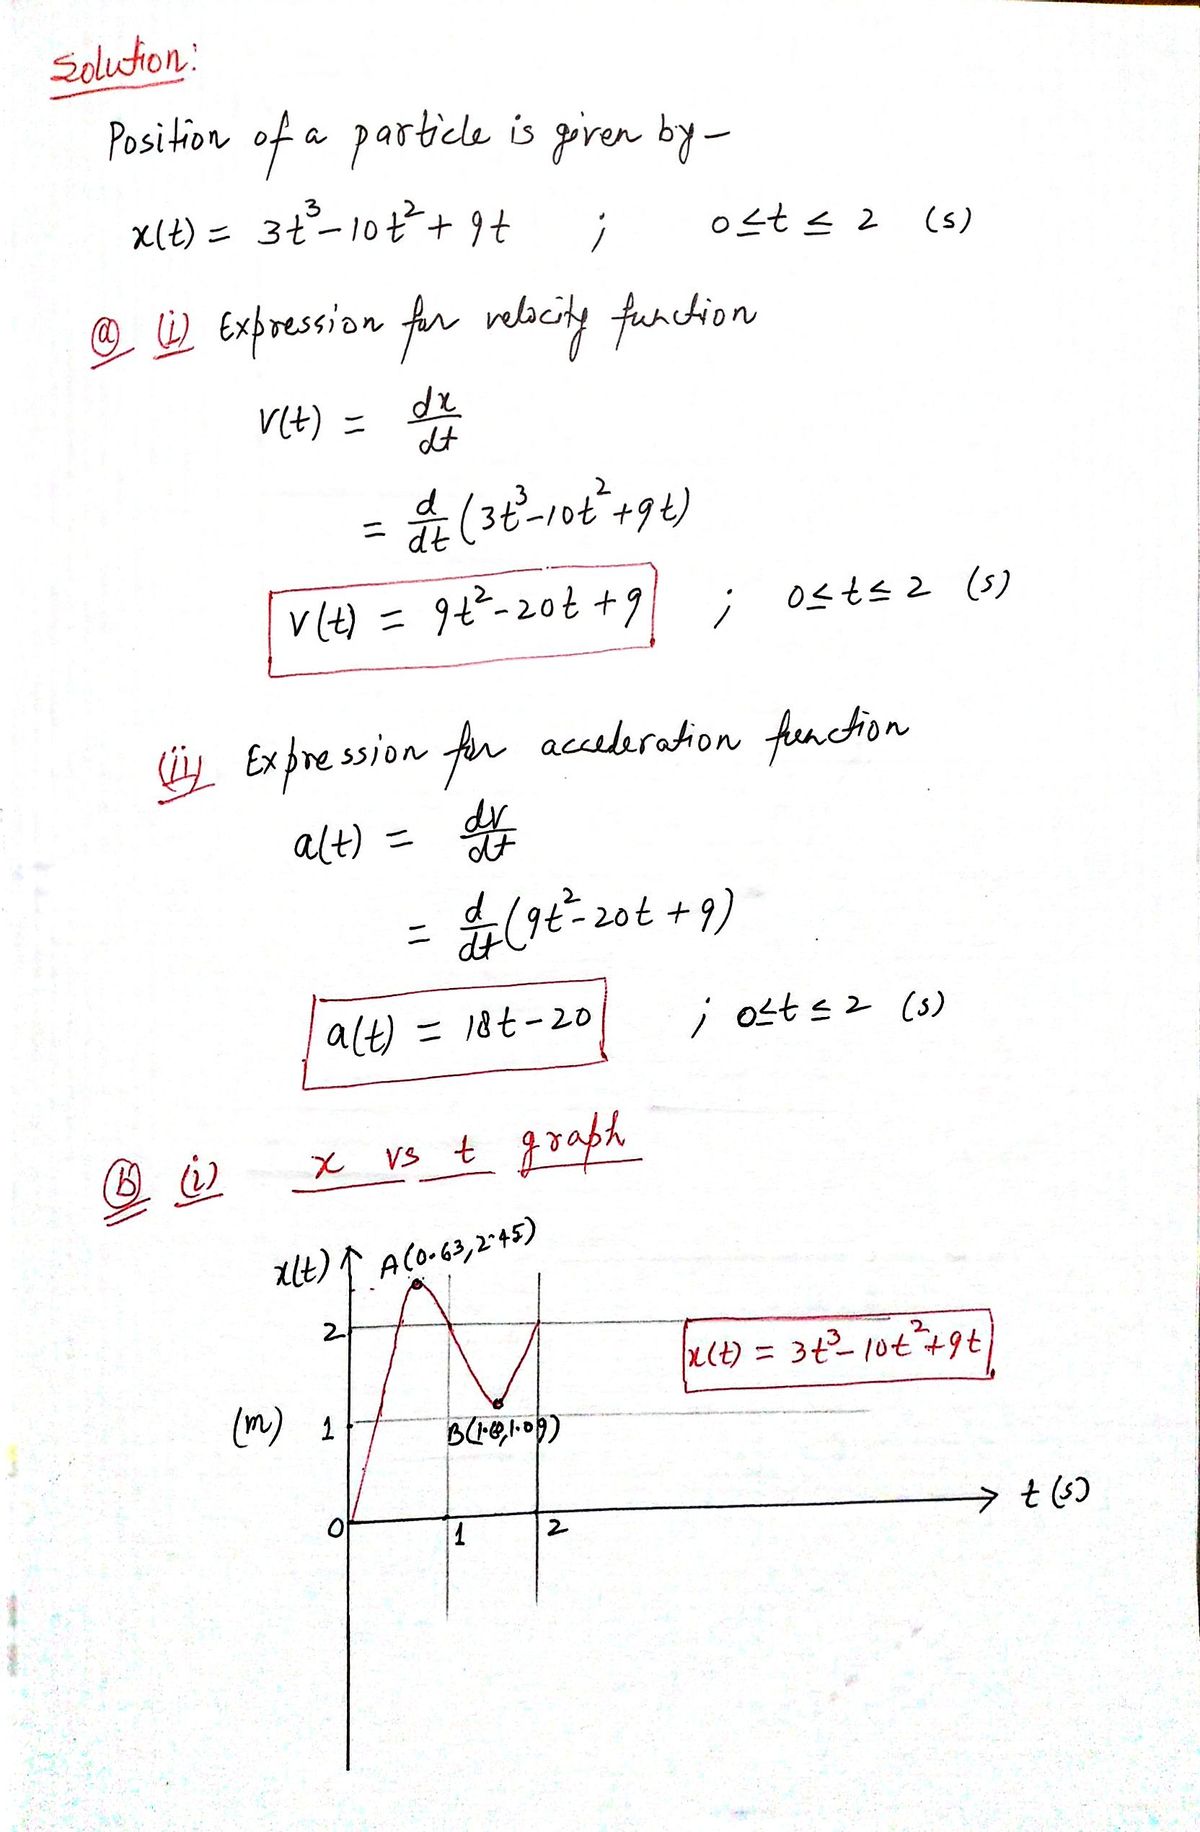 Solution:
Position of a particle is given by-
x(t) = 3t³-10t²+9t ; 0≤t≤2 (s)
ⓐ (i) Expression for velocity function
v(t) = dx/dt
= d/dt (3t³-10t²+9t)
v(t) = 9t²-20t+9 ; 0≤t≤2 (s)
(ii) Expression for acceleration function
a(t) = dv/dt
= d/dt (9t²-20t+9)
a(t) = 18t-20 ; 0≤t≤2 (s)
ⓑ (i) x vs t graph
x(t) A(0.63,2.45)
2
x(t) = 3t³-10t²+9t
(m) 1
B(1.6,1.09)
t(s)
0 1 2